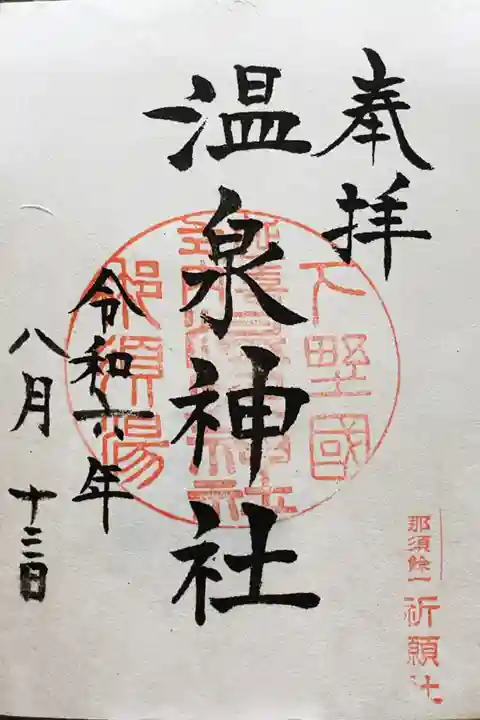 奉拝
温泉神社
令和六年
八月十三日
下野國
那須湯
那須餘一
祈願社